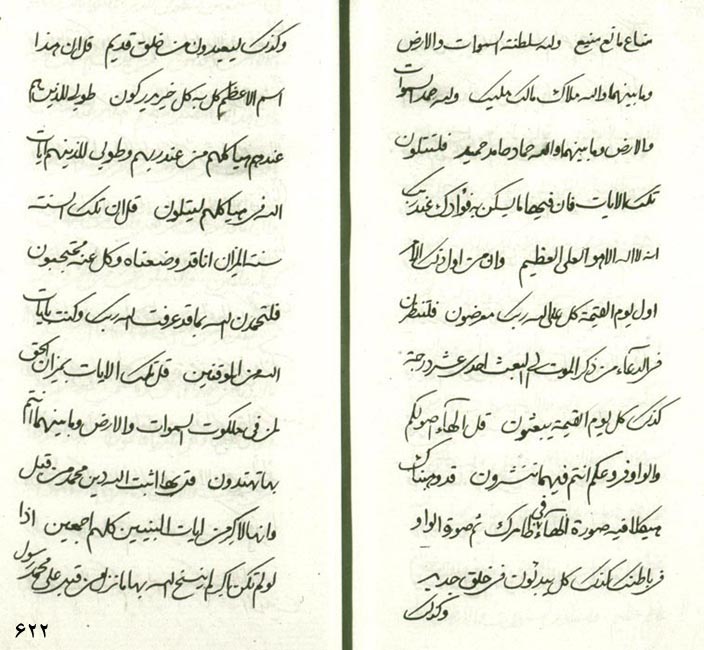 مناع مانع منيع ولله سلطنة السموات والارض
وما بينهما والله ملاك مالك مليك ولله حمد السموات
والارض وما بينهما والله حماد حامد حميد فلتتلون
تلك الايات فان فيها ما يسكن به فؤادك عند ربك
انه لا اله الا هو العلي العظيم وان من اول ذلك الامر
اول يوم القيمة كل على الله ربك معرضون فلتنظرن
في الدعاء من ذكر الموت الى البعث احدى عشر درجة
كذلك كل يوم القيمة يبعثون قل الهاء اصولكم
والواو فروعكم انتم فيهما تنشرون قد وهبناك
هيكلا فيه صورة الهاء في ظاهرك ثم صورة الواو
في باطنك كذلك كل يبدئون في خلق جديد
وكذلك
وكذلك ليعيدون من خلق قديم قل ان هذا
اسم الاعظم كل به كل خير يدركون طوبى للذين هم
عندهم هياكلهم من عند ربهم وطوبى للذينهم ايات
الله في هياكلهم ليتلون قل ان تلك السنة
سنة الميزان انا قد وضعناه وكل عنه محتجبون
فلتحمدن الله بما قد عرفت الله ربك وكنت بايات
الله من الموقنين قل تلك الايات بميزان الحق
لمن في ملكوت السموات والارض وما بينهما انتم
بها تهتدون قد بها اثبت الله دين محمد من قبل
وانها لاكبر من ايات النبيين كلهم اجمعين اذا
لو لم تكن اكبر لم ينسخ الله بها ما نزل من قبل على محمد رسول
۶۲۲